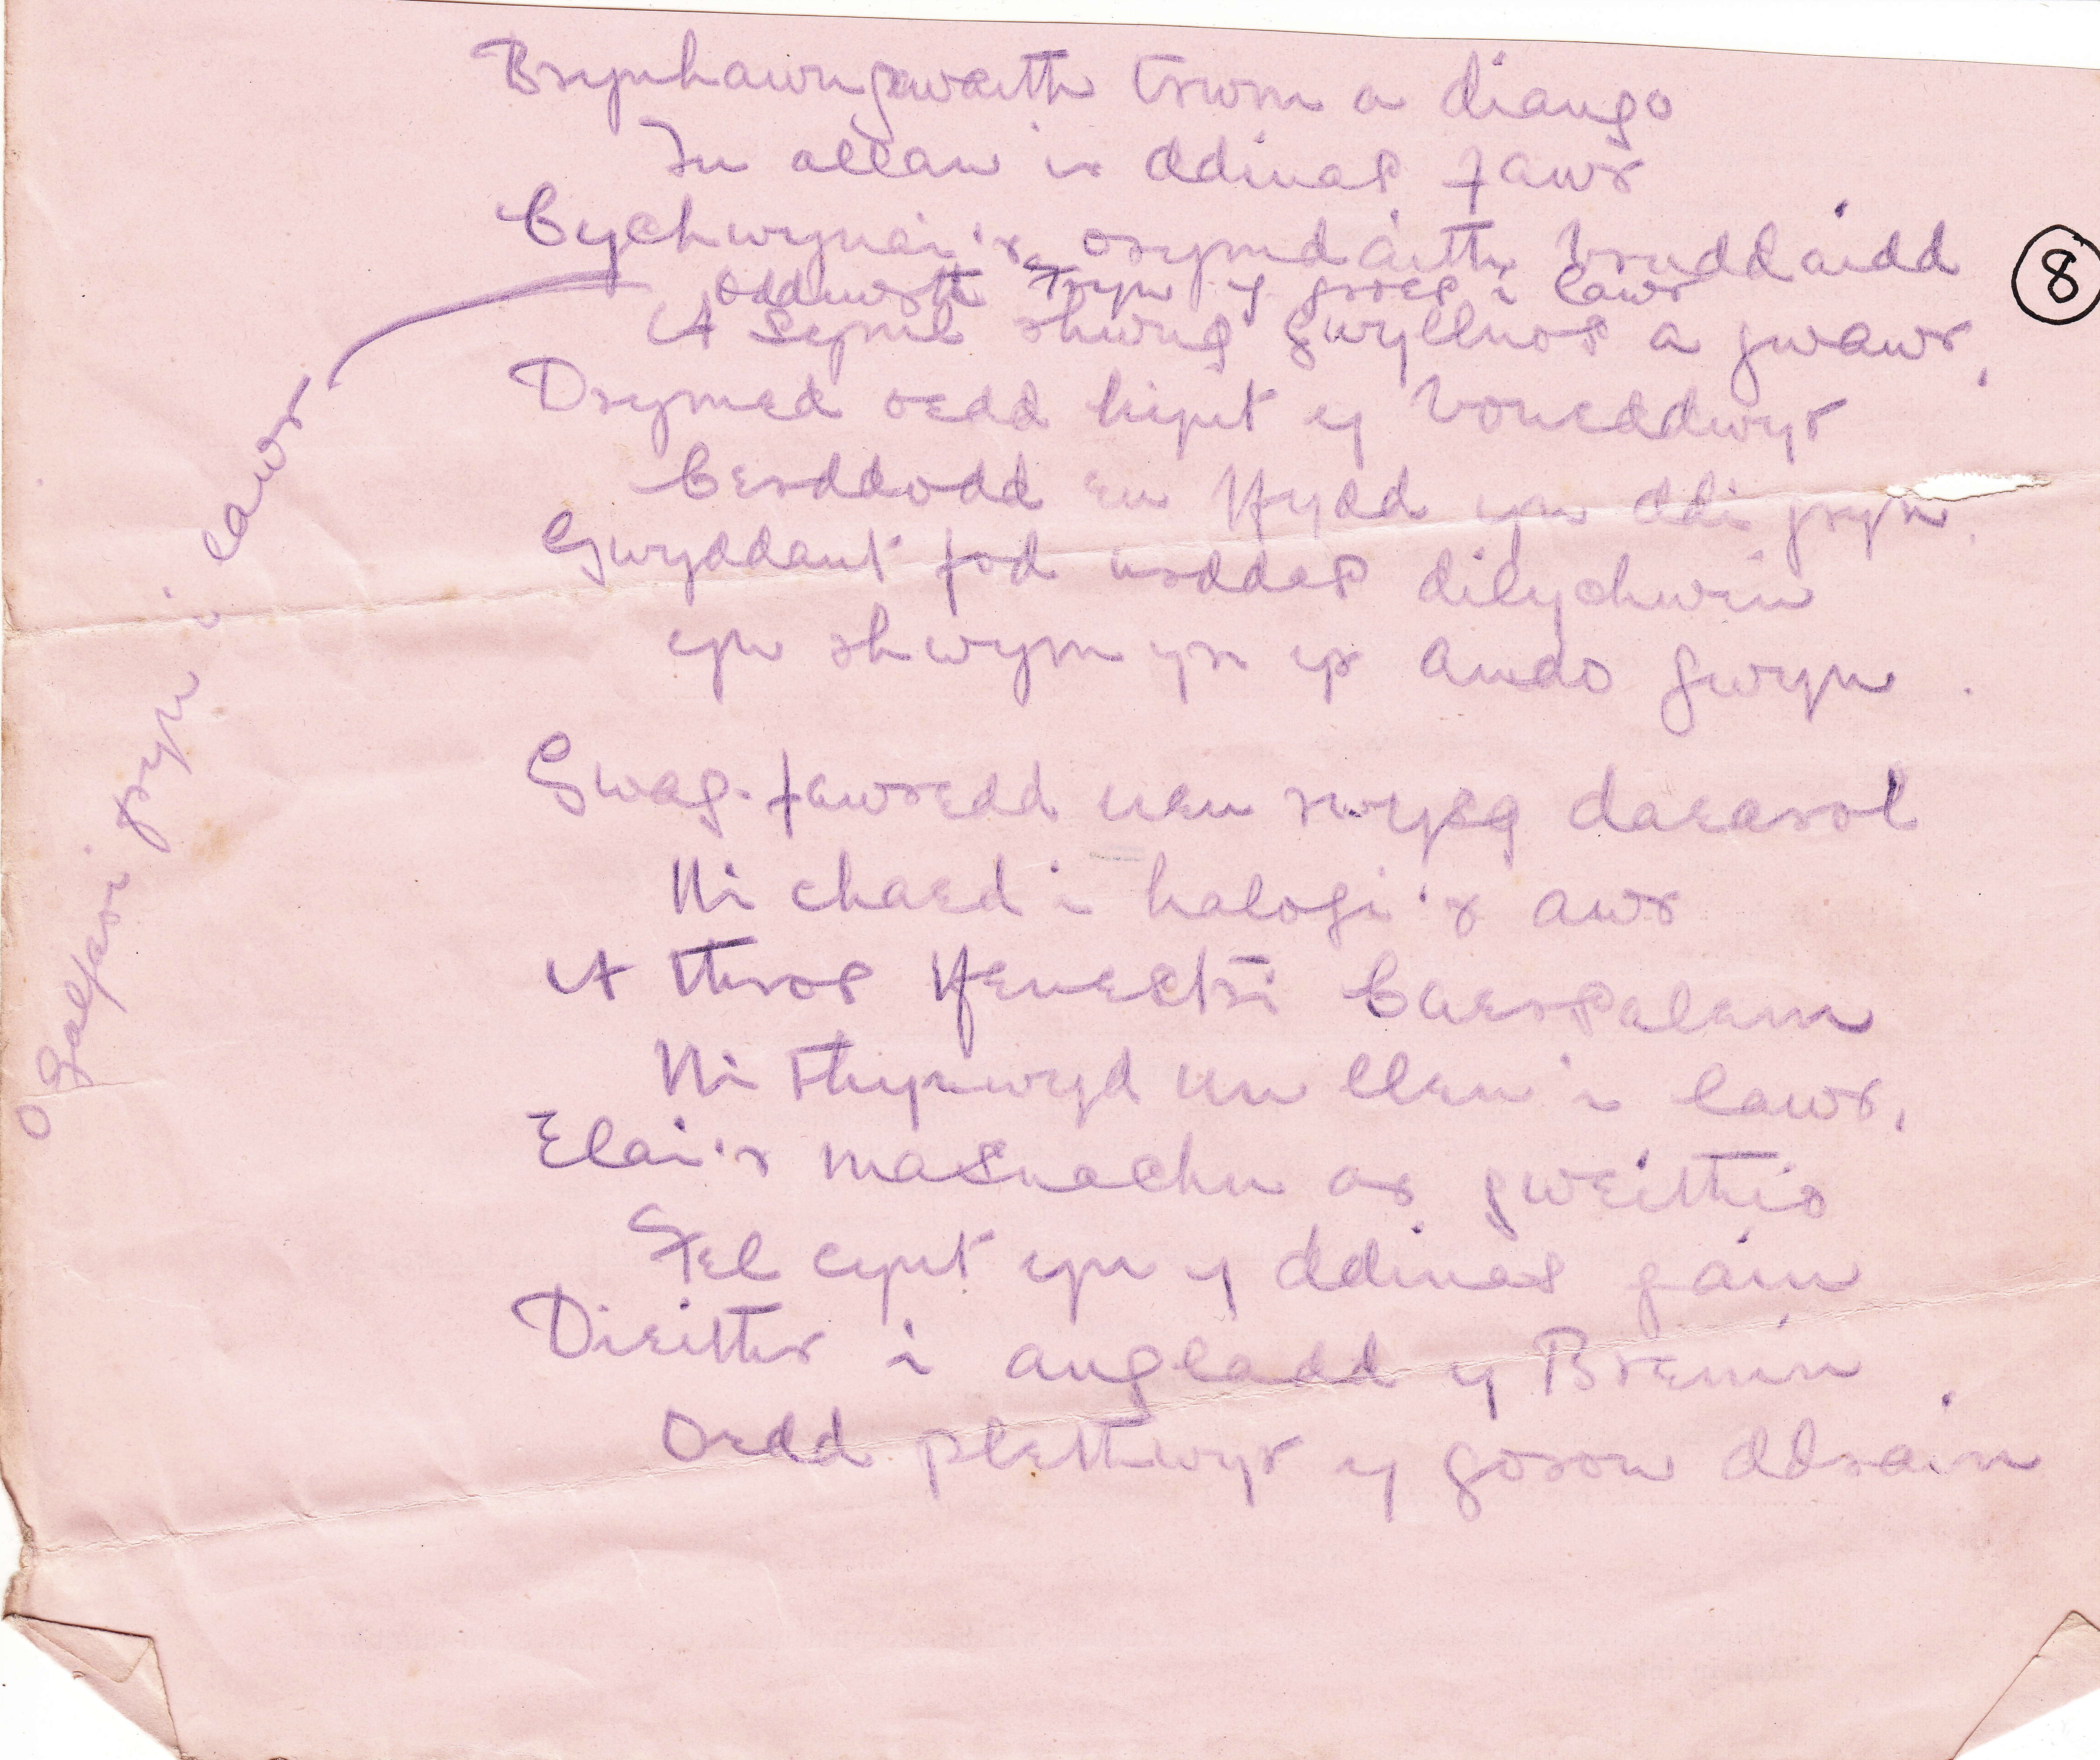 Brynhawngwaith trwm a diango
Tu allan ir ddinas fawr
Cychwynai'r orymdaith bruddaidd
Oddiwrth bryn y groes i lawr
A seml rhwng gwyllnos a gwawr,
Drymed oedd hynt y boneddwyr
Cerddodd eu ffydd yn ddi gryn.
Gwyddant fod urddas dilychwin
yn rhwym yn yr amdo gwyn.
Gwag-fawredd neu rwysg daearol
Ni chaed i halogi'r awr
A thros ffenestri Caersalem
Ni thynwyd un llen i lawr,
Elai'r masnachu ar gweithio
Fel cynt yn y ddinas gain
Dieithr i angladd y Brenin
Oedd plethwyr y goron ddrain.
O Galfari fryn i lawr
8